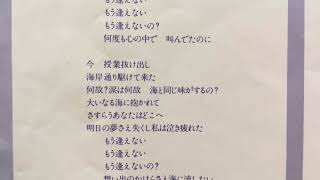 もう逢えない
もう逢えない
もう逢えないの?
何度も心の中で 叫んでたのに
今 授業抜け出し
海岸通り駆けて来た
何故?涙は何故 海と同じ味がするの?
大いなる海に抱かれて
さすらうあなたはどこへ
明日の夢さえ失くし私は泣き疲れた
もう逢えない
もう逢えない
もう逢えないの?
想い出のかけらさえ海に流したい